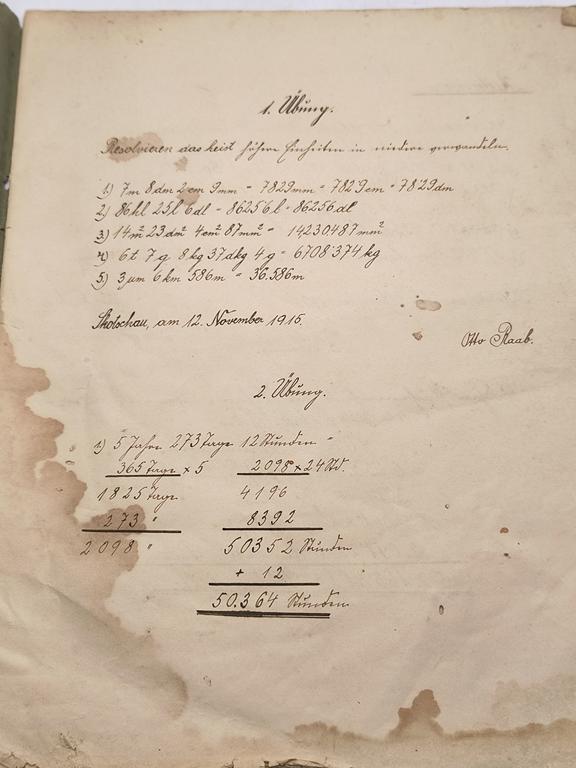 1. Übung.
Resolvieren das heist höhere Einheiten in niedere verwandeln.
1) 7m 8dm 2cm 9mm = 7829mm = 782'9cm = 78'29dm
2) 86hl 25l 6dl = 8625'6l = 86256dl
3) 14m² 23dm² 4cm² 87mm² = 14230487mm²
4) 6t 7q 8kg 37dkg 4g = 6708'374kg
5) 3µm 6km 586m = 36.586m
Skotschau, am 12. November 1915.
Otto Raab.
2. Übung.
1) 5 Jahre 273 Tage 12 Stunden =
365 Tage × 5 2098 × 24 Std.
1825 Tage 4196
273 " 8392
2098 " 50352 Stunden
+ 12
50.364 Stunden